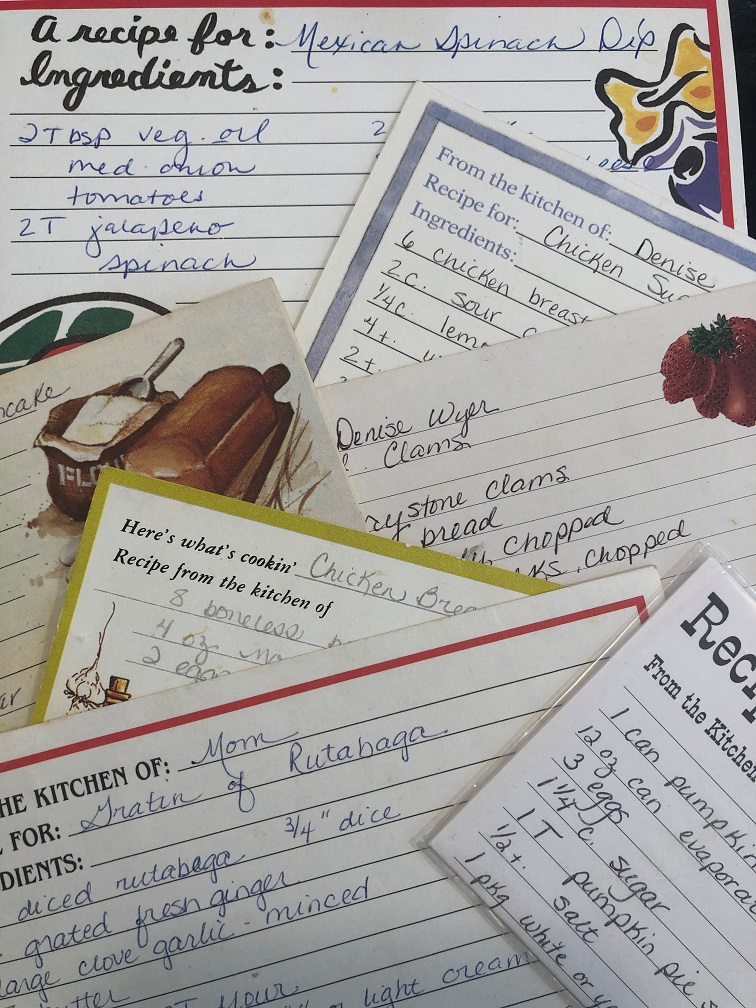 A recipe for: Mexican Spinach Dip
Ingredients:
2 Tbsp veg. oil 2
med. onion
tomatoes
2 T jalapeno
spinach
From the kitchen of: Denise
Recipe for: Chicken
Ingredients:
6 chicken breast
2 c. sour
1/4 c.
4 t.
2 t.
Denise Wyer
Clams
clams
bread
chopped
chopped
FLOU
Here's what's cookin' Chicken
Recipe from the kitchen of
8 boneless
4 oz
2 eggs
HE KITCHEN OF: Mom
FOR: Gratin of Rutabaga
DIENTS:
diced rutabaga 3/4" dice
grated fresh ginger
large clove garlic - minced
light cream
Reci
From the Kitchen
1 can pumpkin
12 oz can evapora
3 eggs
1 1/4 c. sugar
1 T pumpkin pie
1/2 t. salt
1 pkg white or